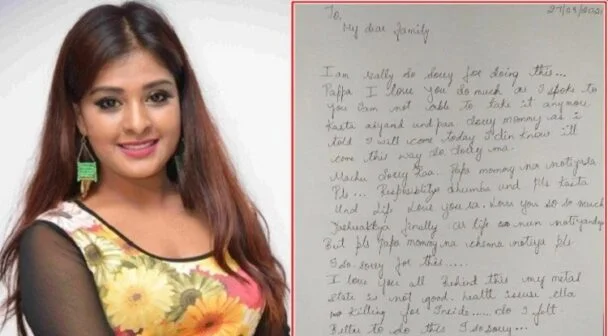 To,
27/09/2021
My dear family
I am really so sorry for doing this...
Pappa I love you so much as I spoke to
you I am not able to take it anymore
Kasta aiyand und paa sorry mommy as i
told I will come today I din know i'll
come this way so sorry ma.
Machu Sorry kaa. Papa mommy na notiyasla
Pls... Responsibitye thumba und pls Kasta
Und Life Love you ra. Loves you so so much
finally as life nun notiyandye
But pls Papa mommy na chenna notiye pls
I so sorry for this.....
I love you all Behind this my metal
State is not good. health issuse ella
no killing for Inside..... do I felt
Better to do this I so sorry...